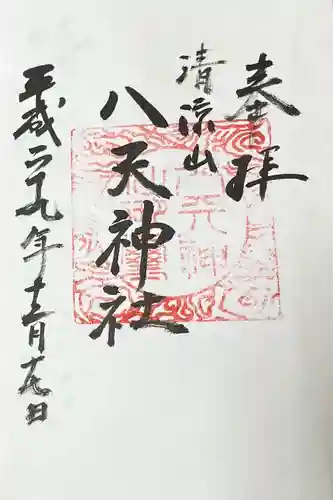 奉拝
清涼山
八天神社
平成二十九年十二月十九日